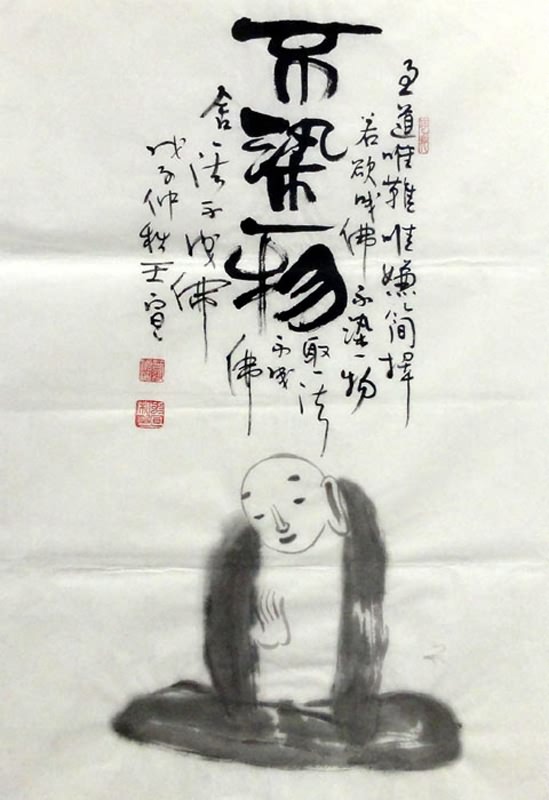 不染一物
至道唯難唯嫌簡擇
若欲成佛不染一物
取一法
不成
佛
舍一法不成佛
戊子仲秋